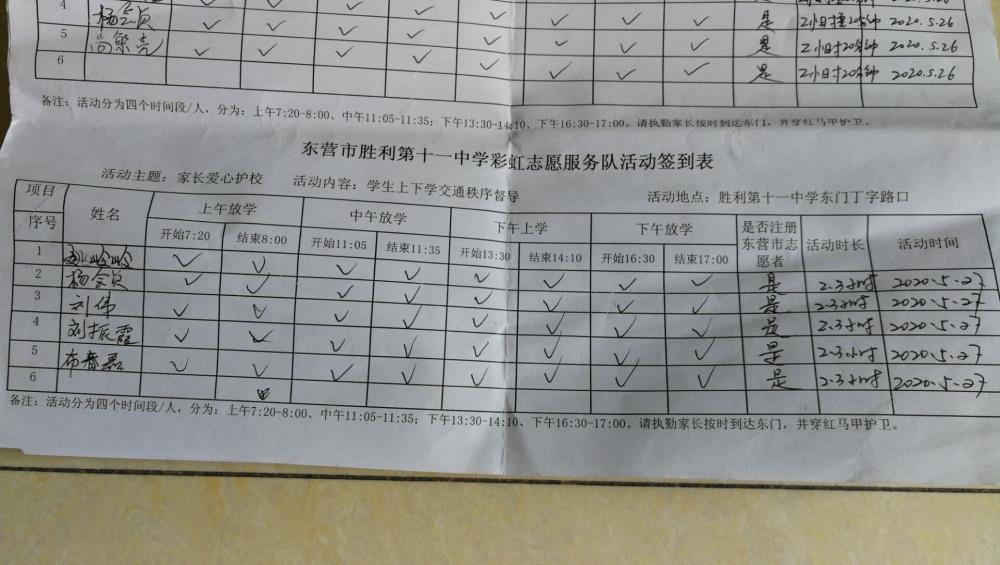 4 杨会贞 ✓ ✓ ✓ ✓ ✓ ✓ ✓ ✓ 是 2小时20分钟 2020.5.26
5 尚繁亮 ✓ ✓ ✓ ✓ ✓ ✓ ✓ ✓ 是 2小时20分钟 2020.5.26
6 ✓ ✓ ✓ 是 2小时20分钟 2020.5.26
备注：活动分为四个时间段/人，分为：上午7:20-8:00、中午11:05-11:35；下午13:30-14:10、下午16:30-17:00。请执勤家长按时到达东门，并穿红马甲护卫。
东营市胜利第十一中学彩虹志愿服务队活动签到表
活动主题：家长爱心护校 活动内容：学生上下学交通秩序督导 活动地点：胜利第十一中学东门丁字路口
项目 序号 姓名 上午放学 中午放学 下午上学 下午放学 是否注册东营市志愿者 活动时长 活动时间
开始7:20 结束8:00 开始11:05 结束11:35 开始13:30 结束14:10 开始16:30 结束17:00
1 岭岭 ✓ ✓ ✓ ✓ ✓ ✓ ✓ ✓ 是 2.3小时 2020.5.27
2 杨会贞 ✓ ✓ ✓ ✓ ✓ ✓ ✓ ✓ 是 2.3小时 2020.5.27
3 刘伟 ✓ ✓ ✓ ✓ ✓ ✓ ✓ ✓ 是 2.3小时 2020.5.27
4 刘振霞 ✓ ✓ ✓ ✓ ✓ ✓ ✓ ✓ 是 2.3小时 2020.5.27
5 布春磊 ✓ ✓ ✓ ✓ ✓ ✓ ✓ ✓ 是 2.3小时 2020.5.27
6
备注：活动分为四个时间段/人，分为：上午7:20-8:00、中午11:05-11:35；下午13:30-14:10、下午16:30-17:00。请执勤家长按时到达东门，并穿红马甲护卫。